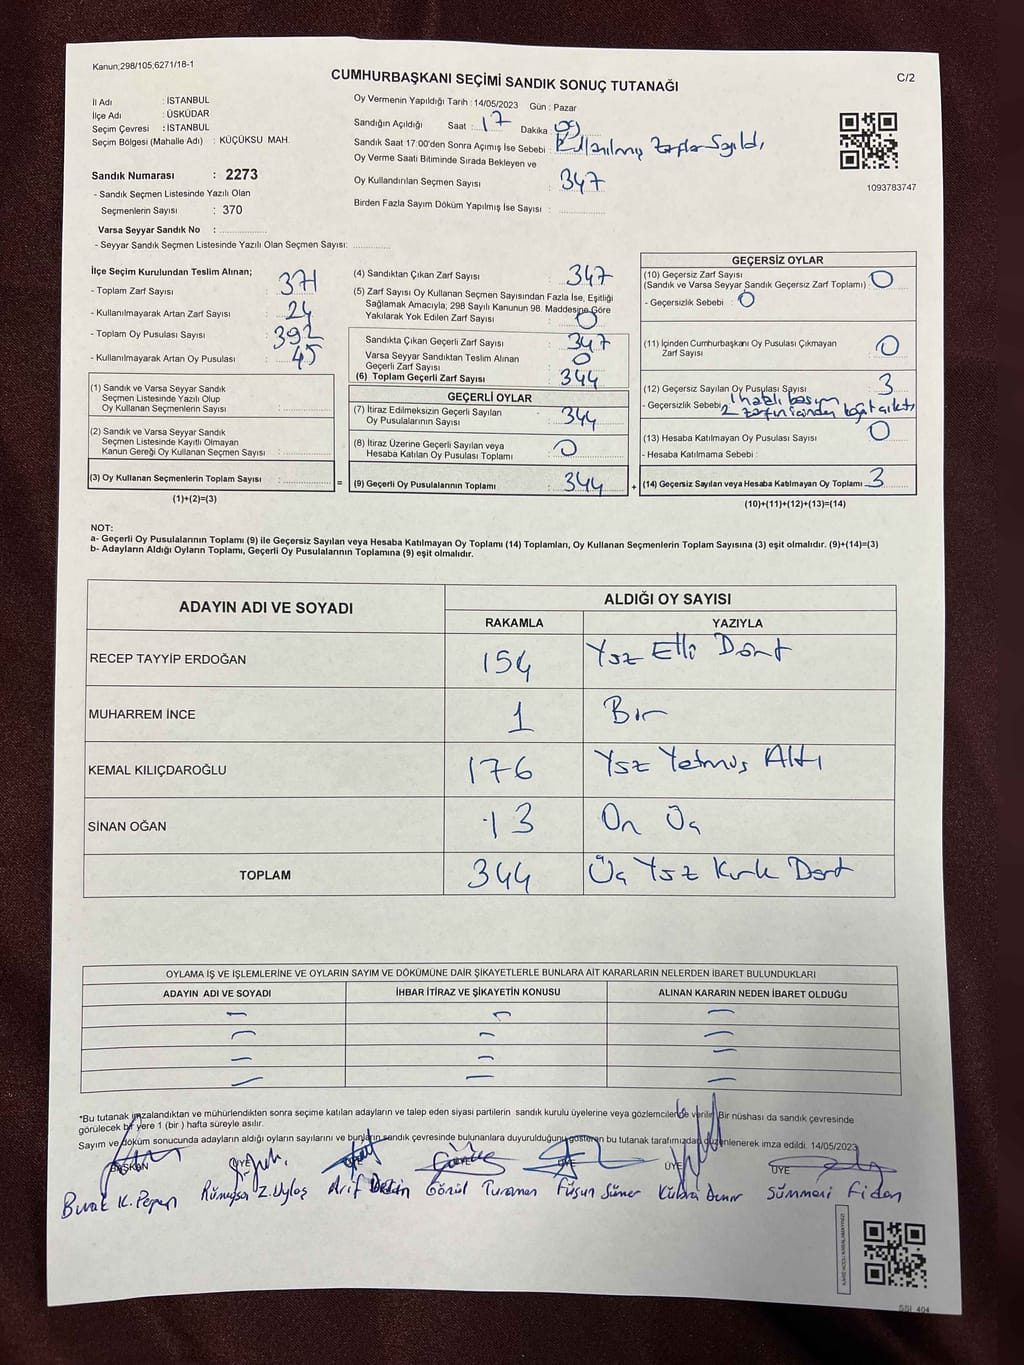 Kanun;298/105,6271/18-1
CUMHURBAŞKANI SEÇİMİ SANDIK SONUÇ TUTANAĞI
C/2
İl Adı : İSTANBUL
İlçe Adı : ÜSKÜDAR
Seçim Çevresi : İSTANBUL
Seçim Bölgesi (Mahalle Adı) : KÜÇÜKSU MAH.
Sandık Numarası : 2273
- Sandık Seçmen Listesinde Yazılı Olan
Seçmenlerin Sayısı : 370
Varsa Seyyar Sandık No :
- Seyyar Sandık Seçmen Listesinde Yazılı Olan Seçmen Sayısı:
Oy Vermenin Yapıldığı Tarih : 14/05/2023 Gün : Pazar
Sandığın Açıldığı Saat : 17 Dakika :
Sandık Saat 17:00'den Sonra Açımış İse Sebebi : Kullanılmış Zarflar Sayıldı,
Oy Verme Saati Bitiminde Sırada Bekleyen ve
Oy Kullandırılan Seçmen Sayısı : 347
Birden Fazla Sayım Döküm Yapılmış İse Sayısı :
1093783747
İlçe Seçim Kurulundan Teslim Alınan;
- Toplam Zarf Sayısı : 371
- Kullanılmayarak Artan Zarf Sayısı : 24
- Toplam Oy Pusulası Sayısı : 392
- Kullanılmayarak Artan Oy Pusulası : 45
(1) Sandık ve Varsa Seyyar Sandık
Seçmen Listesinde Yazılı Olup
Oy Kullanan Seçmenlerin Sayısı :
(2) Sandık ve Varsa Seyyar Sandık
Seçmen Listesinde Kayıtlı Olmayan
Kanun Gereği Oy Kullanan Seçmen Sayısı :
(3) Oy Kullanan Seçmenlerin Toplam Sayısı :
(1)+(2)=(3)
=
(4) Sandıktan Çıkan Zarf Sayısı : 347
(5) Zarf Sayısı Oy Kullanan Seçmen Sayısından Fazla İse, Eşitliği
Sağlamak Amacıyla; 298 Sayılı Kanunun 98. Maddesine Göre
Yakılarak Yok Edilen Zarf Sayısı : 0
Sandıkta Çıkan Geçerli Zarf Sayısı : 347
Varsa Seyyar Sandıktan Teslim Alınan
Geçerli Zarf Sayısı : 0
(6) Toplam Geçerli Zarf Sayısı : 344
GEÇERLİ OYLAR
(7) İtiraz Edilmeksizin Geçerli Sayılan
Oy Pusulalarının Sayısı : 344
(8) İtiraz Üzerine Geçerli Sayılan veya
Hesaba Katılan Oy Pusulası Toplamı : 0
(9) Geçerli Oy Pusulalarının Toplamı : 344
+
GEÇERSİZ OYLAR
(10) Geçersiz Zarf Sayısı
(Sandık ve Varsa Seyyar Sandık Geçersiz Zarf Toplamı) : 0
- Geçersizlik Sebebi : 0
(11) İçinden Cumhurbaşkanı Oy Pusulası Çıkmayan
Zarf Sayısı : 0
(12) Geçersiz Sayılan Oy Pusulası Sayısı : 3
- Geçersizlik Sebebi : 1 hatalı basım
2 zarfın içinden kağıt çıktı
(13) Hesaba Katılmayan Oy Pusulası Sayısı : 0
- Hesaba Katılmama Sebebi :
(14) Geçersiz Sayılan veya Hesaba Katılmayan Oy Toplamı : 3
(10)+(11)+(12)+(13)=(14)
NOT:
a- Geçerli Oy Pusulalarının Toplamı (9) ile Geçersiz Sayılan veya Hesaba Katılmayan Oy Toplamı (14) Toplamları, Oy Kullanan Seçmenlerin Toplam Sayısına (3) eşit olmalıdır. (9)+(14)=(3)
b- Adayların Aldığı Oyların Toplamı, Geçerli Oy Pusulalarının Toplamına (9) eşit olmalıdır.
ADAYIN ADI VE SOYADI
ALDIĞI OY SAYISI
RAKAMLA
YAZIYLA
RECEP TAYYİP ERDOĞAN 154 Yüz Elli Dört
MUHARREM İNCE 1 Bir
KEMAL KILIÇDAROĞLU 176 Yüz Yetmiş Altı
SİNAN OĞAN 13 On Üç
TOPLAM 344 Üç Yüz Kırk Dört
OYLAMA İŞ VE İŞLEMLERİNE VE OYLARIN SAYIM VE DÖKÜMÜNE DAİR ŞİKAYETLERLE BUNLARA AİT KARARLARIN NELERDEN İBARET BULUNDUKLARI
ADAYIN ADI VE SOYADI
İHBAR İTİRAZ VE ŞİKAYETİN KONUSU
ALINAN KARARIN NEDEN İBARET OLDUĞU
*Bu tutanak imzalandıktan ve mühürlendikten sonra seçime katılan adayların ve talep eden siyasi partilerin sandık kurulu üyelerine veya gözlemcilerine verilir. Bir nüshası da sandık çevresinde
görülecek bir yere 1 (bir ) hafta süreyle asılır.
Sayım ve döküm sonucunda adayların aldığı oyların sayılarını ve bunların sandık çevresinde bulunanlara duyurulduğunu gösteren bu tutanak tarafımızdan düzenlenerek imza edildi. 14/05/2023
BAŞKAN ÜYE ÜYE ÜYE ÜYE
Burak K. Arif Gönül Turaman Füsun Sümer Kübra Demir Sümmeri Fidan
SSI_404